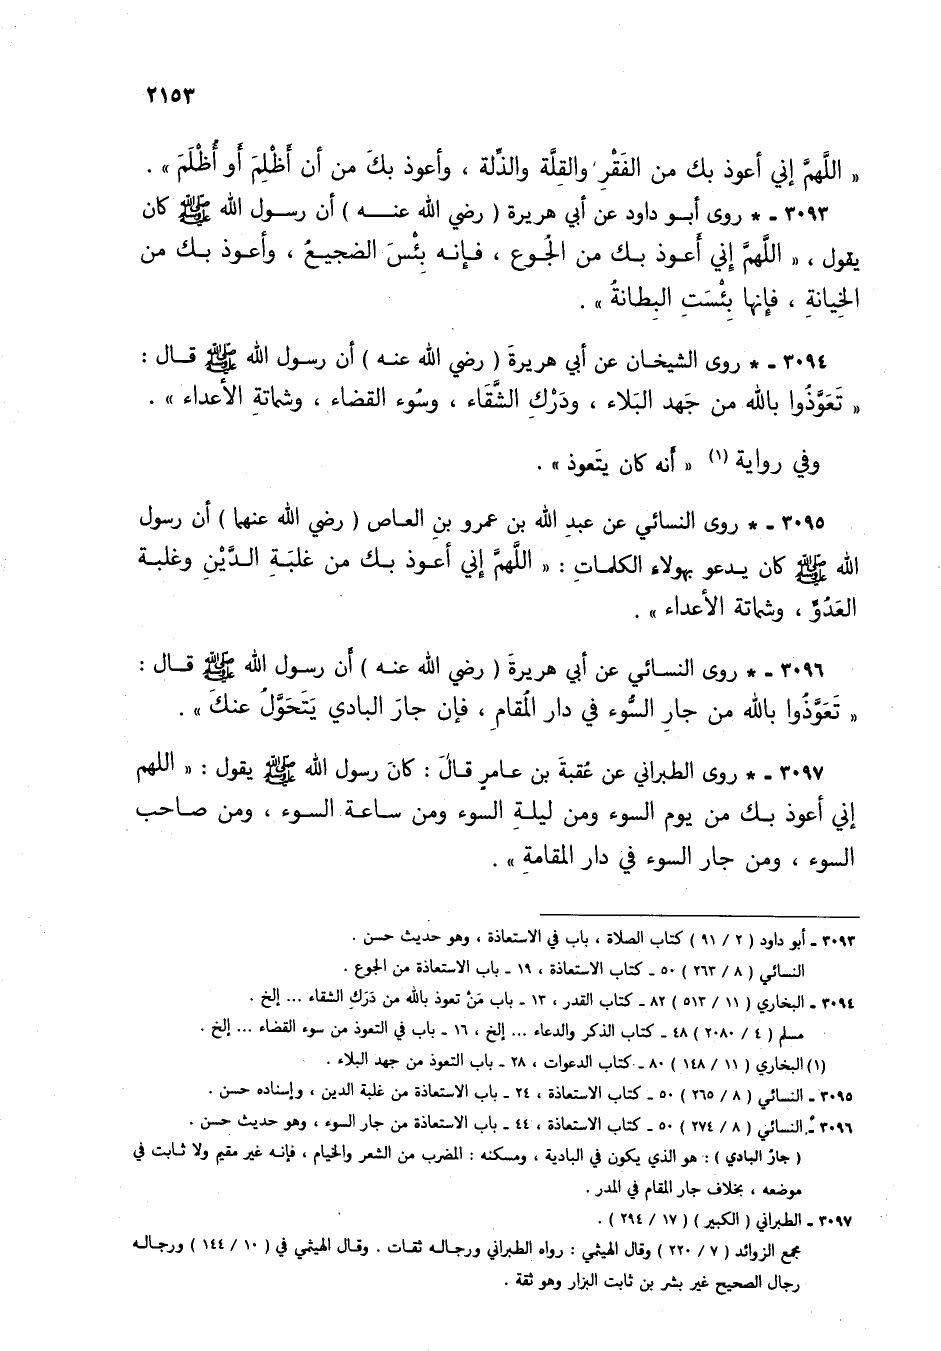 ٢١٥٣
« اللَّهمَّ إني أعوذ بك من الفَقْرِ والقِلَّة والذِّلة ، وأعوذ بكَ من أن أَظْلِمَ أو أُظْلَمَ » .
٣٠٩٣ ـ * روى أبـو داود عن أبي هريرة ( رضي الله عنـــه ) أن رسـول الله ﷺ كان
يقول ، « اللَّهمَّ إنِّي أَعـوذ بـك من الجُوع ، فـإنـه بِئْسَ الضجيعُ ، وأعـوذ بـك من
الخِيانةِ ، فإنها بِئْسَتِ البِطانةُ » .
٣٠٩٤ ـ * روى الشيخـان عن أبي هريرةَ ( رضي الله عنـه ) أن رسـول الله ﷺ قـال :
« تَعَوَّذُوا بالله من جَهد البَلاء ، ودَرْكِ الشَّقَاء ، وسُوء القضاء ، وشماتةِ الأعداء » .
وفي رواية (١) « أنه كان يتَعوذ » .
٣٠٩٥ ـ * روى النسائي عن عبدِ الله بن عمرو بنِ العـاص ( رضي الله عنهما ) أن رسول
الله ﷺ كان يـدعو بهولاء الكلمـاتِ : « اللَّهمَّ إنّي أعـوذ بـك من غلبَـةِ الـدَّيْنِ وغلبـة
العَدُوِّ ، وشماتة الأعداء » .
٣٠٩٦ ـ * روى النسـائي عن أبي هريرةَ ( رضي الله عنـه ) أن رسـول الله ﷺ قـال :
« تَعَوَّذُوا بالله من جارِ السُّوء في دار المُقامِ ، فإن جارَ البادي يَتَحَوَّلُ عنكَ » .
٣٠٩٧ ـ * روى الطبراني عن عُقبةَ بن عـامرٍ قـالَ : كانَ رسول الله ﷺ يقول : « اللهم
إني أعوذ بـك من يوم السوء ومن ليلـةِ السوء ومن سـاعـة السـوء ، ومن صـاحب
السوء ، ومن جار السوء في دار المقامةِ » .
٣٠٩٣ ـ أبو داود ( ٢ / ٩١ ) كتاب الصلاة ، باب في الاستعاذة ، وهو حديث حسن .
النسائي ( ٨ / ٢٦٣ ) ٥٠ ـ كتاب الاستعاذة ، ١٩ ـ باب الاستعاذة من الجوع .
٣٠٩٤ ـ البخاري ( ١١ / ٥١٣ ) ٨٢ ـ كتاب القدر ، ١٣ ـ باب مَنْ تعوذ بالله من دَرَكِ الشقاء ... إلخ .
مسلم ( ٤ / ٢٠٨٠ ) ٤٨ ـ كتاب الذكر والدعاء ... إلخ ، ١٦ ـ باب في التعوذ من سوء القضاء ... إلخ .
(١) البخاري ( ١١ / ١٤٨ ) ٨٠ ـ كتاب الدعوات ، ٢٨ ـ باب التعوذ من جهد البلاء .
٣٠٩٥ ـ النسائي ( ٨ / ٢٦٥ ) ٥٠ ـ كتاب الاستعاذة ، ٢٤ ـ باب الاستعاذة من غلبة الدين ، وإسناده حسن .
٣٠٩٦ ـ النسائي ( ٨ / ٢٧٤ ) ٥٠ ـ كتاب الاستعاذة ، ٤٤ ـ باب الاستعاذة من جار السوء ، وهو حديث حسن .
( جارُ البادي ) : هو الذي يكون في البادية ، ومسكنه : المضرب من الشعر والخيام ، فإنـه غير مقيم ولا ثـابت في
موضعه ، بخلاف جار المقام في المدر .
٣٠٩٧ ـ الطبراني ( الكبير ) ( ١٧ / ٢٩٤ ) .
مجمع الزوائد ( ٧ / ٢٢٠ ) وقال الهيثمي : رواه الطبراني ورجـالـه ثقـات . وقـال الهيثمي في ( ١٠ / ١٤٤ ) ورجـالـه
رجال الصحيح غير بشر بن ثابت البزار وهو ثقة .